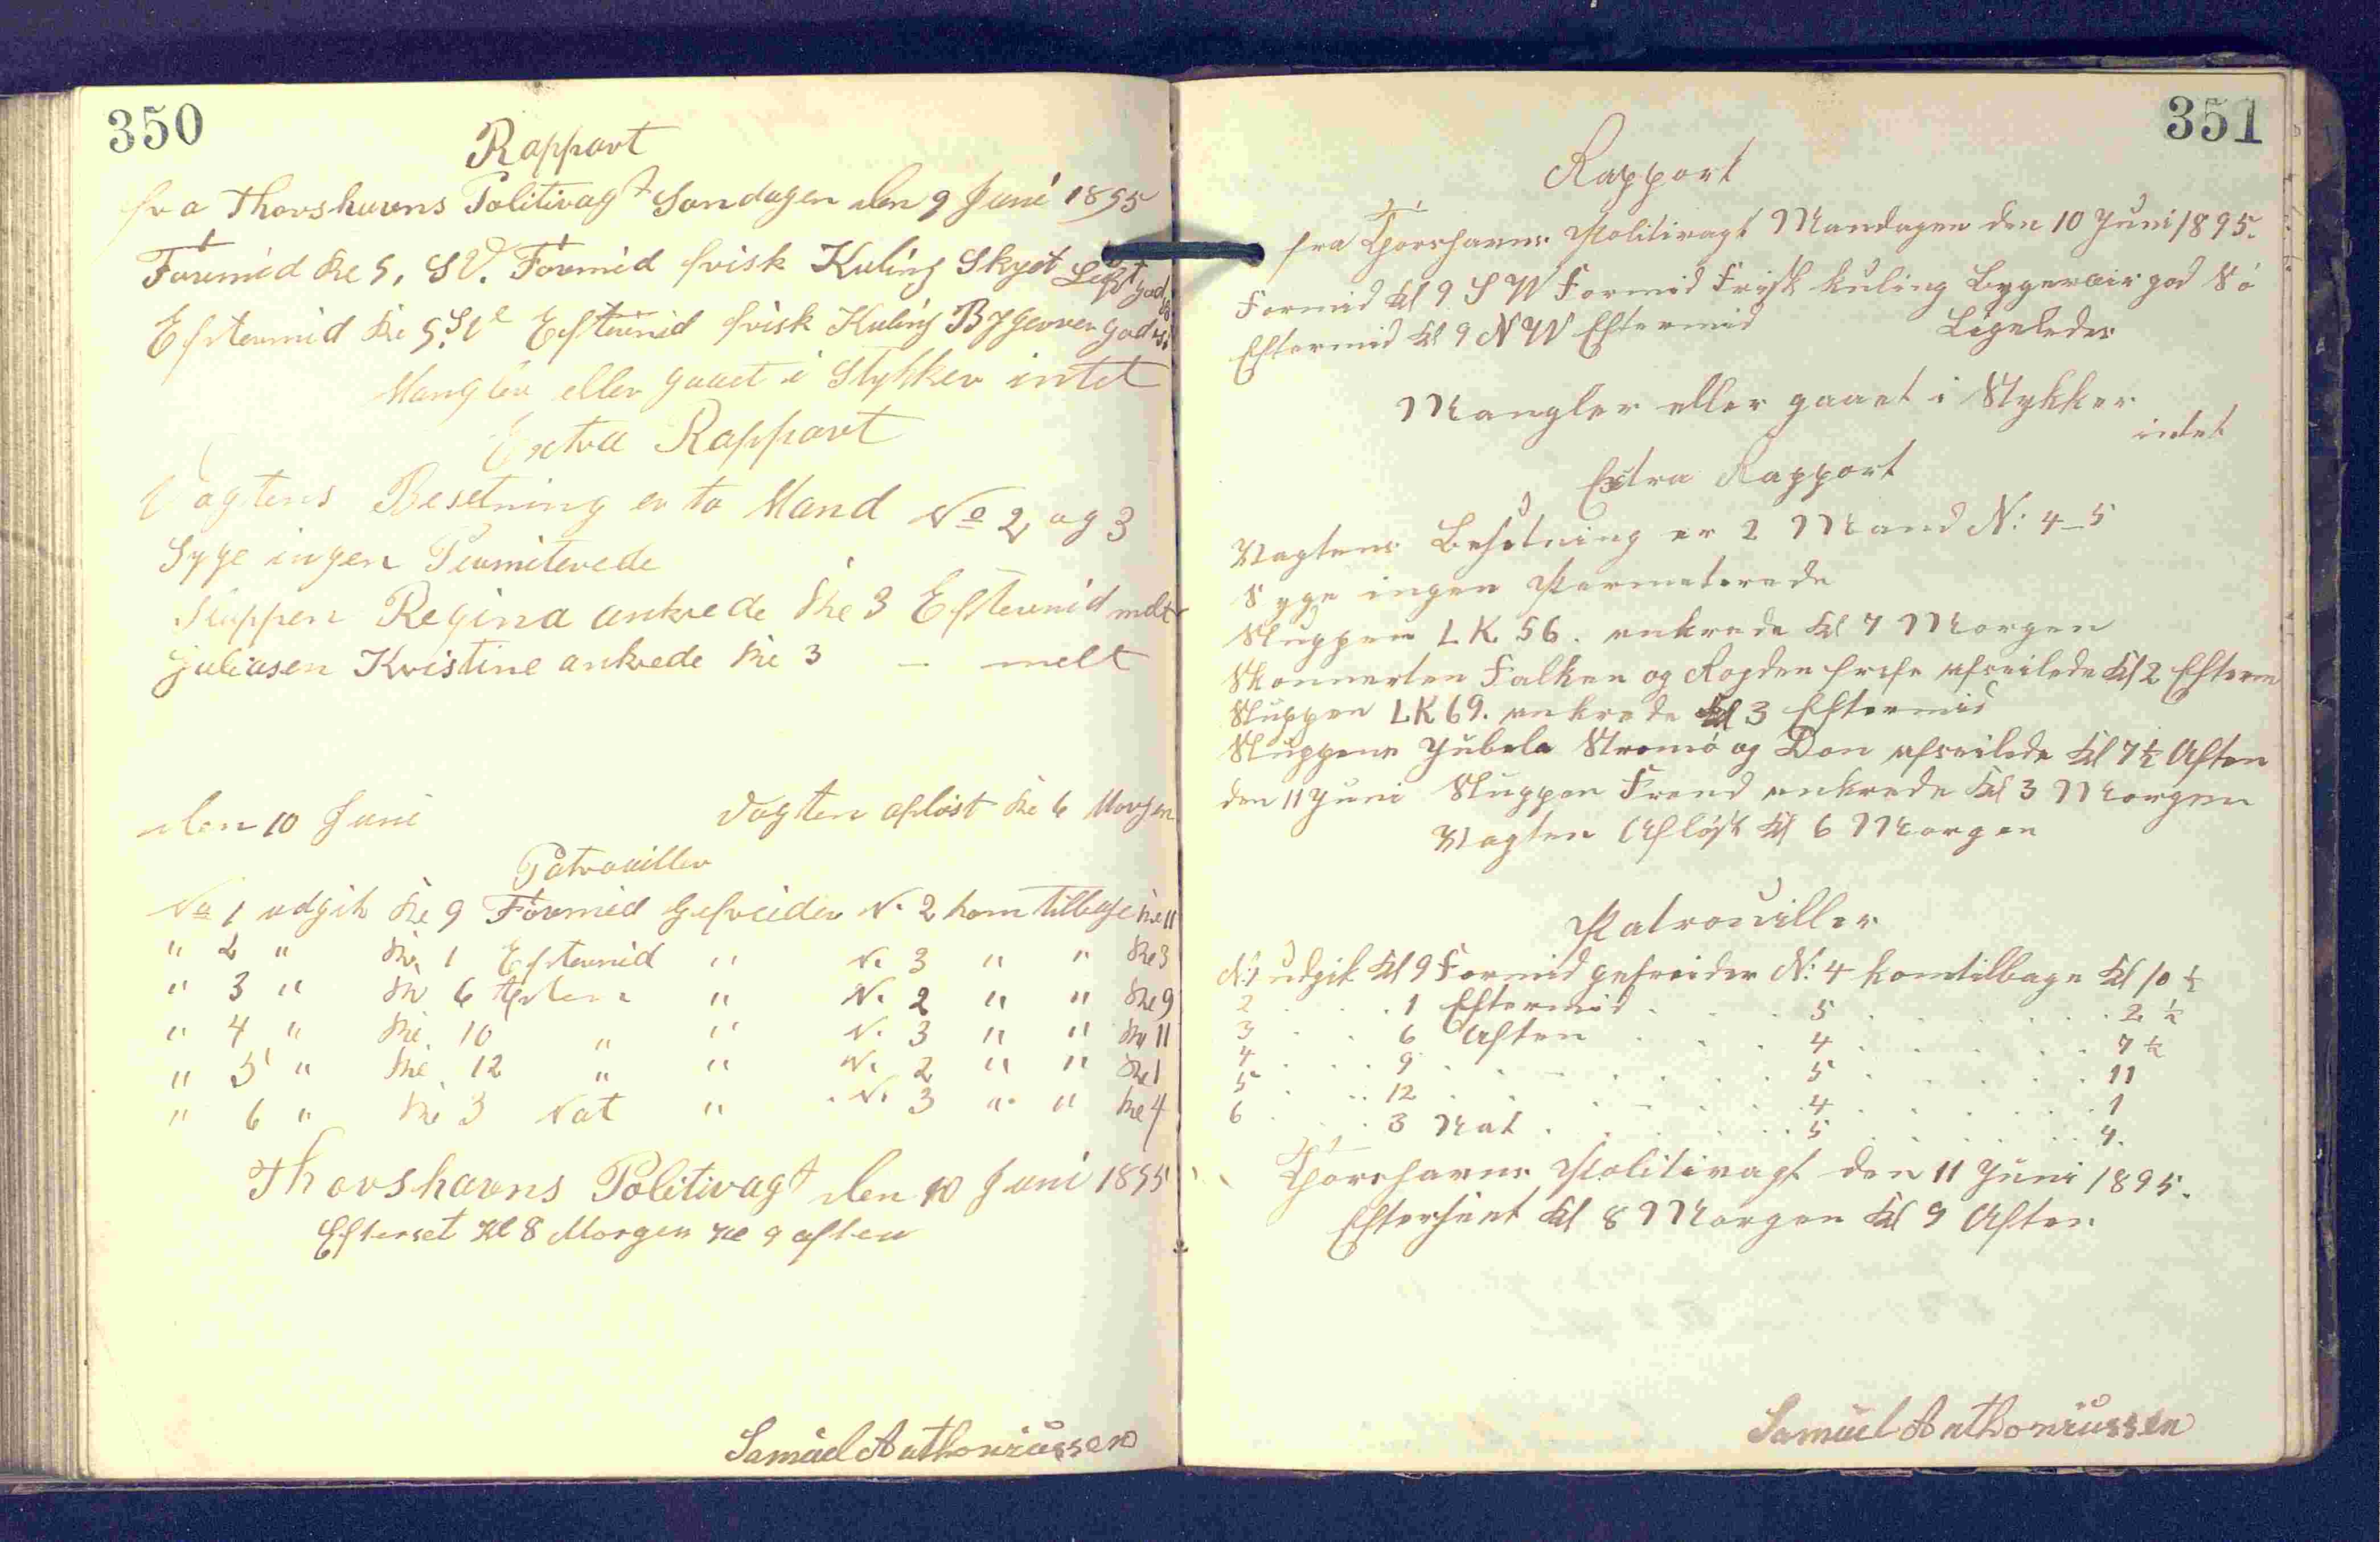 350
Rapport
fra Thorshavns Politivagt Søndagen den 9 Juni 1895
Formid Kl 9, SV. Formid frisk Kuling Skyet Luft god Sø
Eftermid Kl 9 SV Eftermid frisk Kuling Bygevær god Sø
Mangler eller gaaet i Stykker intet
Extra Rapport
Vagtens Besetning er to Mand No 2 og 3
Syge ingen Permiterede
Sluppen Regina ankrede Kl 3 Eftermid melt
Juliasen Kristine ankrede Kl 3 — melt
den 10 Juni Vagten apløst Kl 6 Morgen
Patrouiller
No 1 udgik Kl 9 Formid Gefreider N. 2 kom tilbage Kl 11
" 2 " Kl. 1 Eftermid " N. 3 " " Kl 3
" 3 " Kl 6 Aften " N. 2 " " Kl 9
" 4 " Kl. 10 " " N. 3 " " Kl 11
" 5 " Kl. 12 " " N. 2 " " Kl 1
" 6 " Kl 3 Nat " N. 3 " " Kl 4
Thorshavns Politivagt den 10 Juni 1895
Efterset Kl 8 Morgen Kl 9 aften
Samuel Anthoniussen
351
Rapport
fra Thorshavns Politivagt Mandagen den 10 Juni 1895.
Formid Kl 9 S W Formid Frisk Kuling Bygevair god Sø
Eftermid Kl 9 N W Eftermid Ligeledes
Mangler eller gaaet i Stykker
intet
Extra Rapport
Vagtens Besetning er 2 Mand N: 4-5
Syge ingen Permeterede
Sluppen LK. 56. ankrede Kl 7 Morgen
Skonnerten Falken og afseilede Kl 2 Efterm
Sluppen LK 69. ankrede Kl 3 Eftermid
Sluppene Jubela Strømø og Don afseilede Kl 7½ Aften
den 11 Juni Sluppen Frend ankrede Kl 3 Morgen
Vagten Afløst Kl 6 Morgen
Patrouiller
N:1 udgik Kl 9 Formid gefreider N: 4 kom tilbage Kl 10 ½
2 . . . 1 Eftermid . . . 5 . . . . . . 2 ½
3 . . . 6 Aften . . . 4 . . . . . . 7 ½
4 . . . 9 . . . . . . 5 . . . . . . 11
5 . . . 12 . . . . . . 4 . . . . . . 1
6 . . . 3 Nat . . . . . . 5 . . . . . . 4.
Thorshavns Politivagt den 11 Juni 1895.
Efterseet Kl 8 Morgen Kl 9 Aften
Samuel Anthoniussen